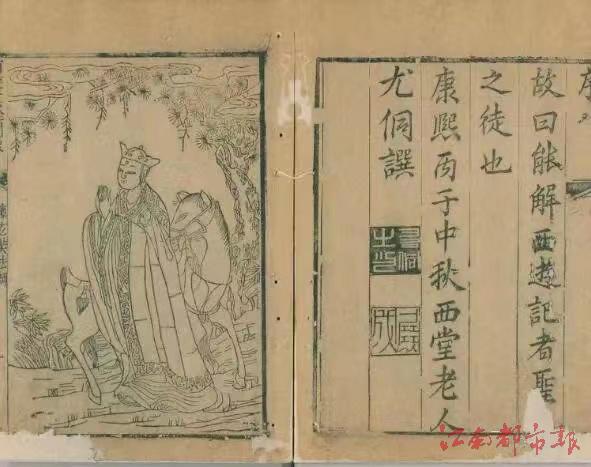 序
故曰能解西遊記者聖
之徒也
康熙丙子中秋西堂老人
尤侗撰
尤侗之印
江南都市報